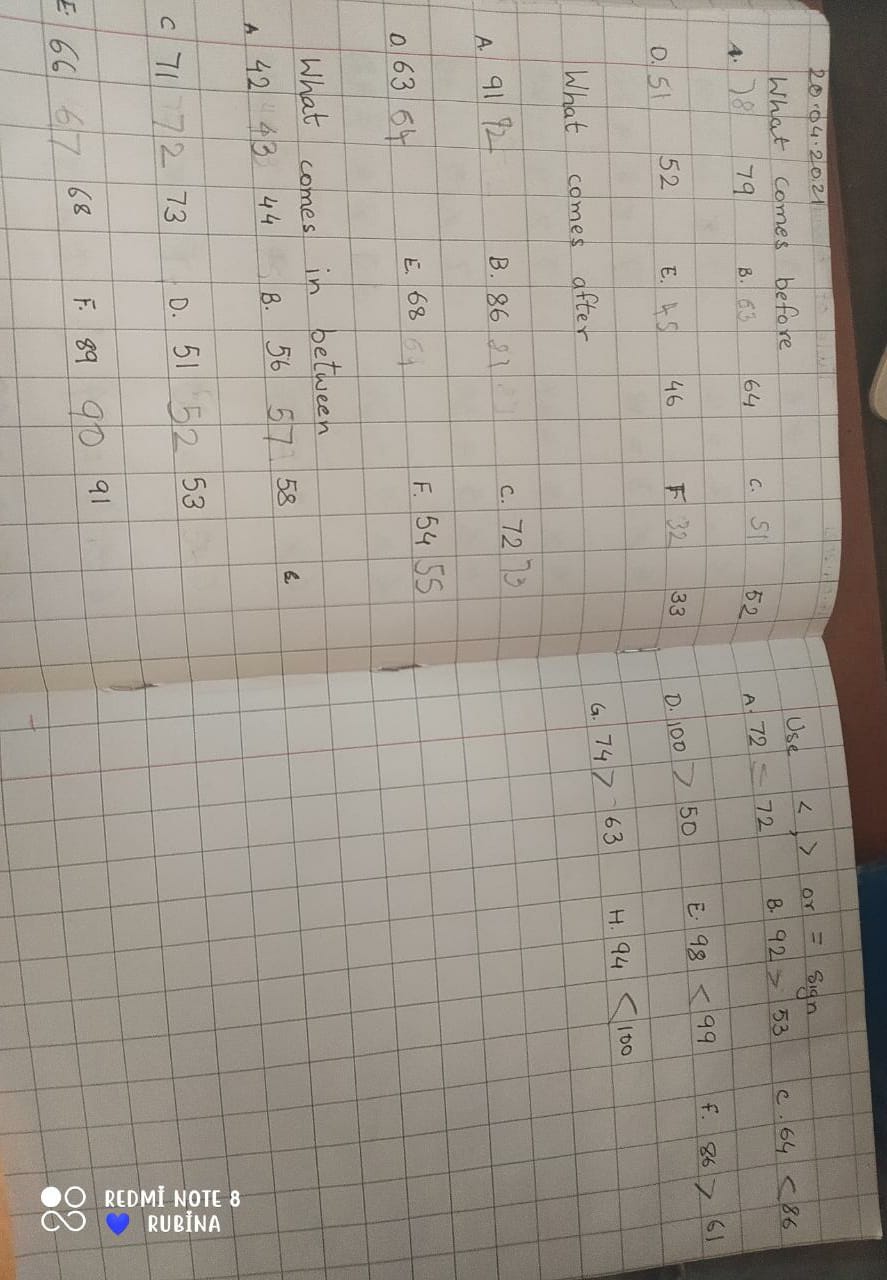 20.04.2021
What comes before
A. 78 79 B. 63 64 C. 51 52
D. 51 52 E. 45 46 F 32 33
What comes after
A. 91 92 B. 86 87 C. 72 73
D. 63 64 E. 68 69 F. 54 55
What comes in between
A 42 43 44 B. 56 57 58
C 71 72 73 D. 51 52 53
E. 66 67 68 F. 89 90 91
Use <, > or = sign
A. 72 = 72 B. 92 > 53 C. 64 < 86
D. 100 > 50 E. 98 < 99 F. 86 > 61
G. 74 > 63 H. 94 < 100
REDMİ NOTE 8
RUBİNA